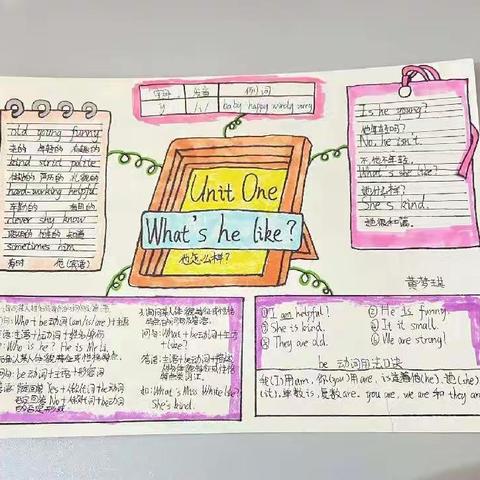 字母 发音 例词
y /i/ baby happy windy sorry
old young funny
老的 年轻的 有趣的
kind strict polite
体贴的 严厉的 礼貌的
hard-working helpful
辛勤的 有用的
clever shy know
聪明的 害羞的 知道
sometimes him
有时 他(宾语)
Unit One
What's he like?
他怎么样?
Is he young?
他年轻吗?
No, he isn't.
不,他不年轻。
What's she like?
她什么样?
She's kind.
她很和蔼。
问句: Who + be动词(am/is/are)+主语
答语:主语+be动词+
如: Who is he? He is Mr Li.
问句: be动词+主语+
Yes + be动词
No + be动词
问句: What + be动词+主语
+ like?
答语:主语+be动词+
如: What's Miss White like?
She's kind.
①I am helpful! ④He is funny.
②She is kind. ⑤It it small.
③They are old. ⑥We are strong!
be 动词用法口诀
我(I)用am, 你(you)用are, is连着他(he), 她(she)
它(it), 单数is, 复数are. you are, we are 和 they are